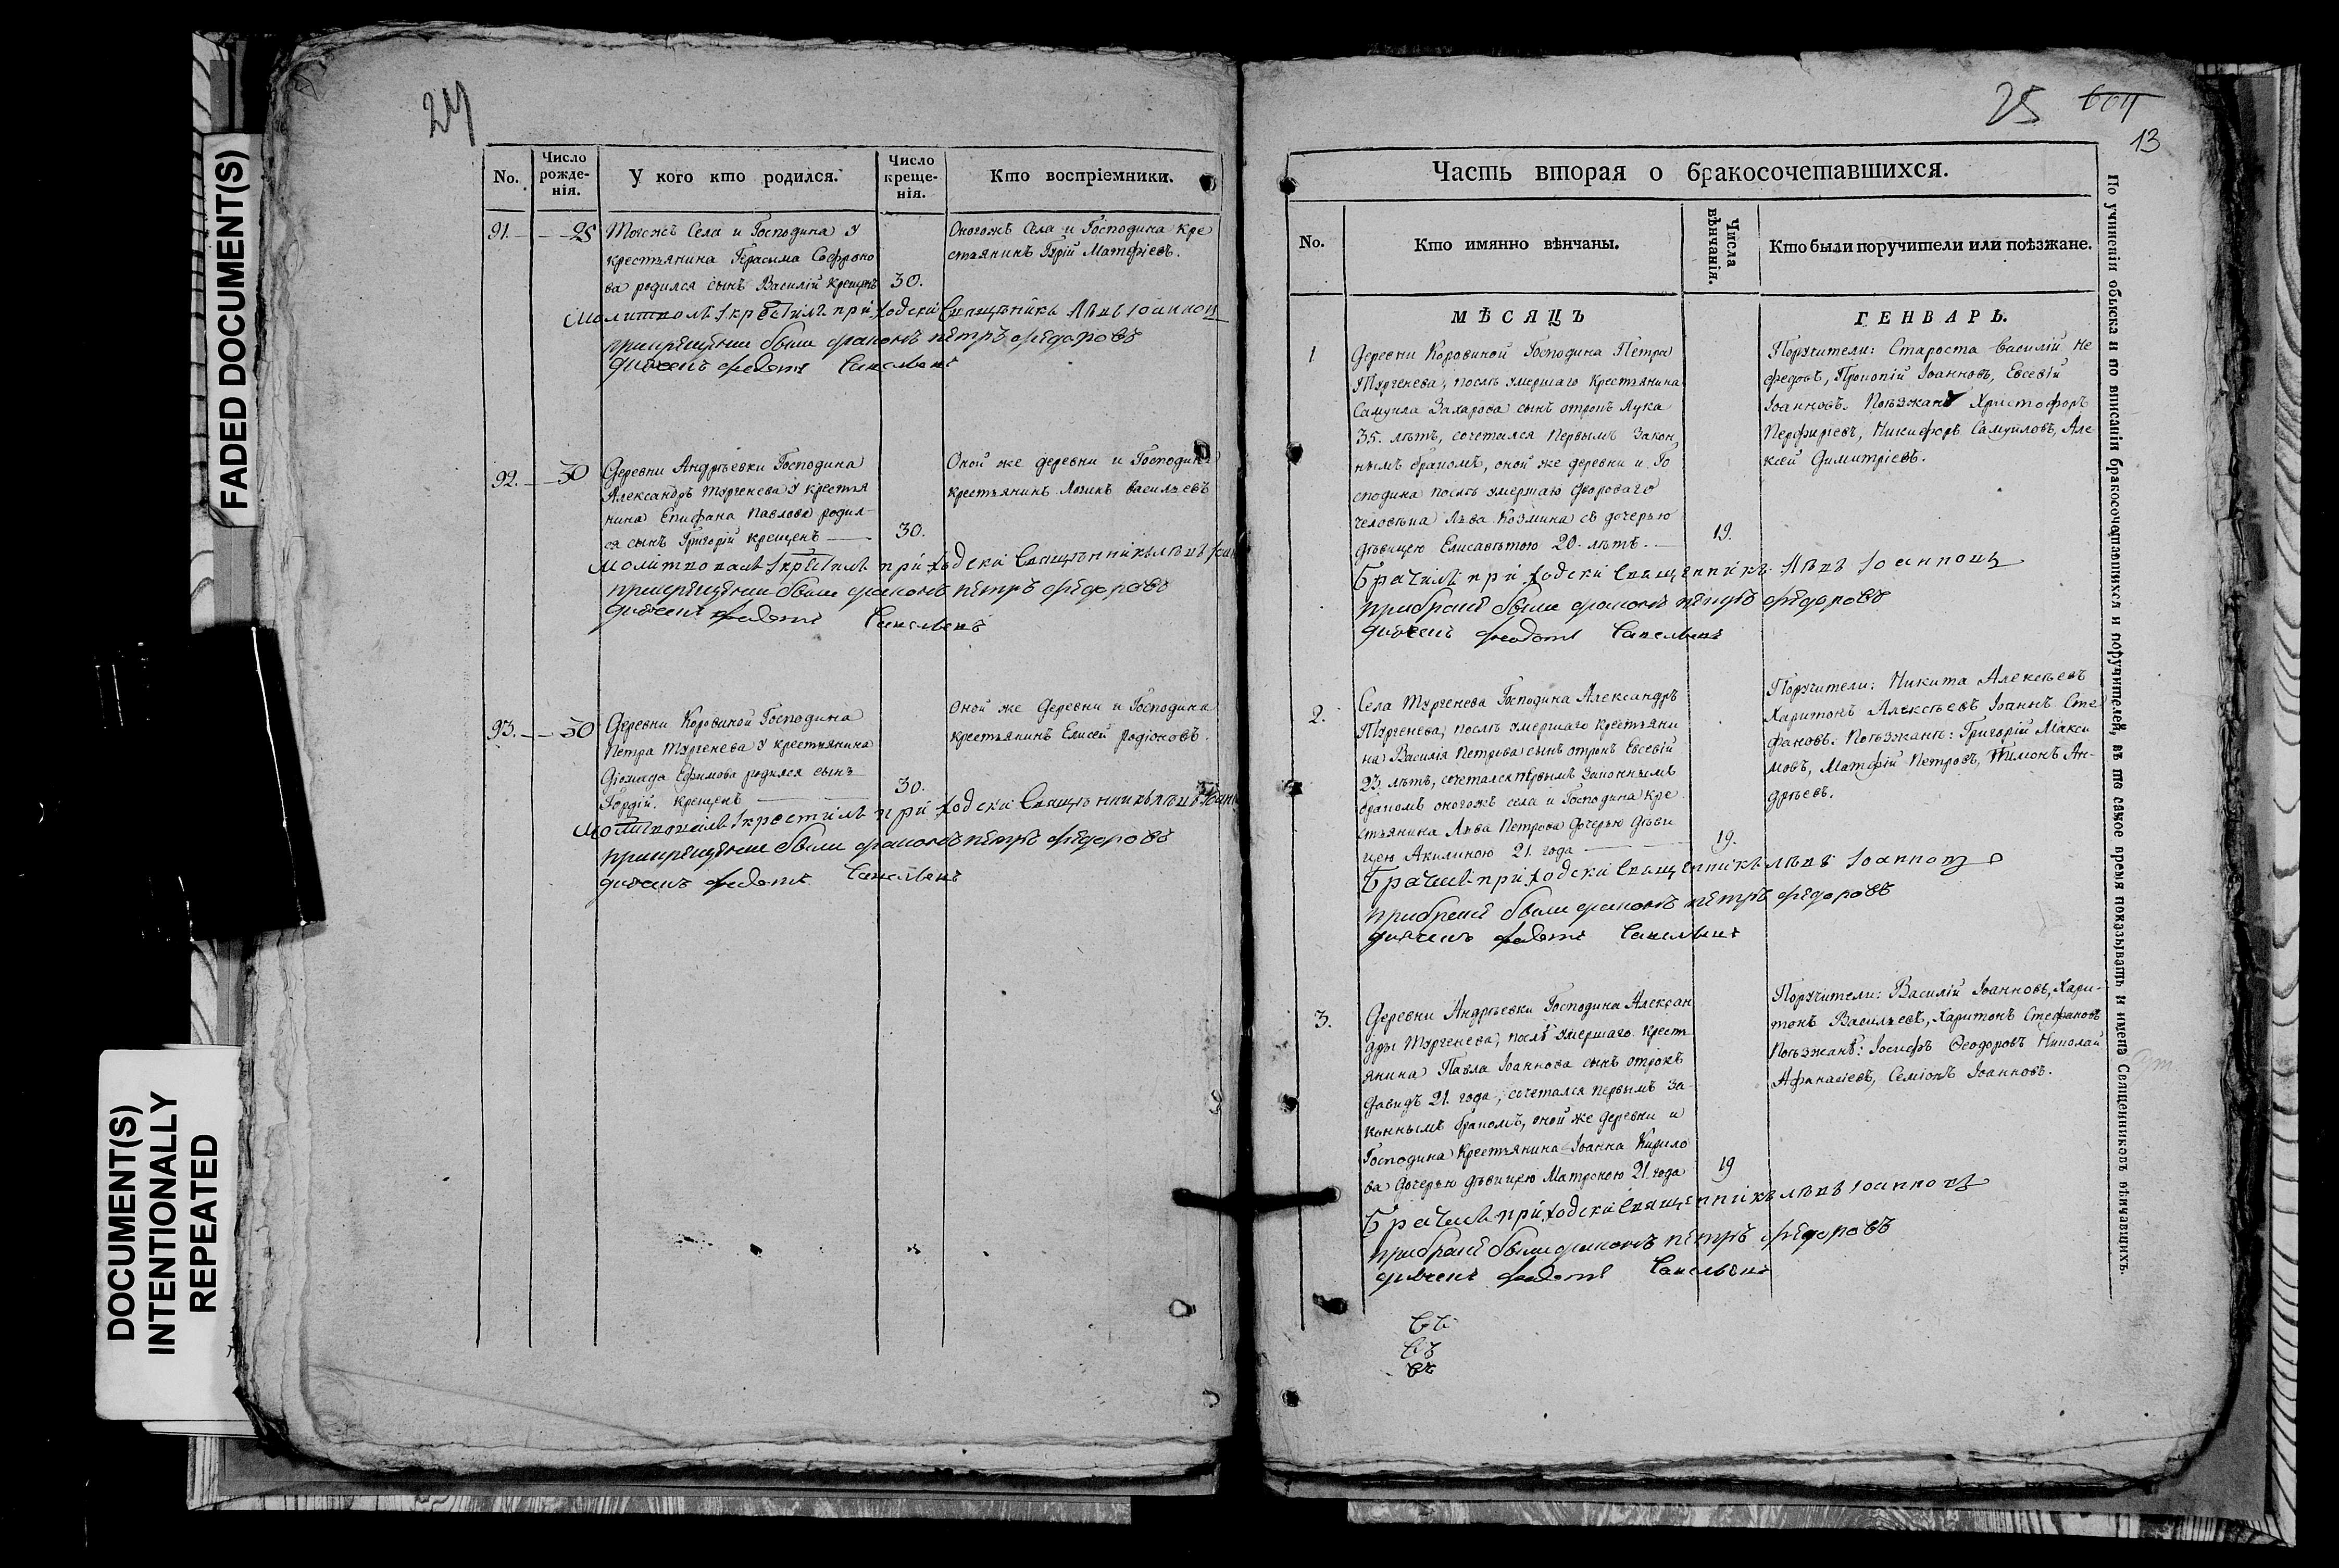 FADED DOCUMENT(S)
DOCUMENT(S)
INTENTIONALLY
REPEATED
24
No.
Число
рожде-
нія.
У кого кто родился.
Число
креще-
нія.
Кто воспріемники.
91. 28 Тогожъ Села и Господина у
крестьянина Герасима Софроно
ва родился сынъ Василій крещенъ 30.
Оногожъ Села и Господина кре
стьянинъ Гурій Матфіевъ.
Молитволъ і крестилъ приходскі Священникъ Левъ Іоанновъ
при крещеніи были Диаконъ петръ Федоровъ
дьячекъ Федотъ Савельевъ
92. 30 Деревни Андрѣевки Господина
Александръ Тургенева у крестья
нина Епифана Павлова родил-
ся сынъ Григорій крещенъ 30.
Оной же деревни и Господина
крестьянинъ Логинъ Васильевъ
молитвовалъ і крестилъ приходскі Священникъ левъ Іоан
при крещеніи были Диаконъ петръ Федоровъ
дьячекъ Федотъ Савельевъ
93. 30 Деревни Коровиной Господина
Петра Тургенева у крестьянина
Діомида Ефимова родился сынъ
Гордій. крещенъ 30.
Оной же Деревни и Господина
крестьянинъ Елисей Родіоновъ.
Молитвовалъ і крестилъ приходскі Священникъ левъ Іоанн
при крещеніи были Диаконъ петръ Федоровъ
дьячекъ Федотъ Савельевъ
25 604
13
Часть вторая о бракосочетавшихся.
No.
Кто имянно вѣнчаны.
Числа
вѣнчанія.
Кто были поручители или поѣзжане.
МѢСЯЦЪ
ГЕНВАРЬ.
1 Деревни Коровиной Господина Петра
Тургенева, послѣ умершаго Крестьянина
Самуила Захарова сынъ отрокъ Лука
35. лѣтъ, сочетался Первымъ Закон,
нымъ бракомъ, оной же деревни и Го
сподина послѣ умершаго Двороваго
человѣка Льва Козмина съ дочерью
дѣвицею Елисаветою 20. лѣтъ. 19.
Поручители: Староста Василій Не
федовъ, Прокопій Іоанновъ, Евсевій
Іоанновъ. Поѣзжанѣ Христофоръ
Перфиріевъ, Никифоръ Самуиловъ, Але
ксѣй Димитріевъ.
Брачилъ приходскі Священникъ Левъ Іоанновъ
при браке были Диаконъ петръ Федоровъ
дьячекъ Федотъ Савельевъ
2. Села Тургенева Господина Александръ
Тургенева, послѣ умершаго Крестьяни
на Василія Петрова сынъ отрокъ Евсевій
23. лѣтъ, сочетался первымъ Законнымъ
бракомъ оногожъ села и Господина кре
стьянина Льва Петрова дочерью дѣви
цею Акилиною 21. года 19.
Поручители: Никита Алексѣевъ
Харитонъ Алексѣевъ Іоаннъ Сте
фановъ. Поѣзжанѣ: Григорій Макси
мовъ, Матфій Петровъ, Тимонъ Ан-
дрѣевъ.
Брачилъ приходскі Священникъ левъ Іоанновъ
при браке были Диаконъ петръ Федоровъ
дьячекъ Федотъ Савельевъ
3. Деревни Андрѣевки Господина Алексан
дры Тургенева, послѣ умершаго крестъ
янина Павла Іоаннова сынъ отрокъ
Давидъ 21. года, сочетался первымъ За-
коннымъ бракомъ, оной же деревни и
Господина Крестьянина Іоанна Кирило
ва дочерью дѣвицею Матроною 21. года 19
Поручители: Василій Іоанновъ, Хари-
тонъ Васильевъ, Харитонъ Стефановъ
Поѣзжанѣ: Іосифъ Ѳеодоровъ Николай
Афанасіевъ, Семіонъ Іоанновъ.
Брачилъ приходскі Священникъ левъ Іоанновъ
при браке были Диаконъ петръ Федоровъ
дьячекъ Федотъ Савельевъ
По учиненіи обыска и по вписаніи бракосочетавшихся и поручителей, въ то самое время показывать и имена Священниковъ вѣнчавшихъ.